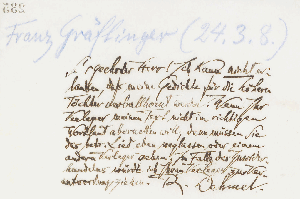 Franz Gräflinger (24.3.8.)
geehrter Herr! Ich kann nicht er-
lauben, daß meine Gedichte für die höheren
Töchter werden. Wenn Ihr
Verleger meinen Text nicht im richtigen
Wortlaut abdrucken will, dann müssen Sie
das betr. Lied eben weglassen oder einem
andern Verleger geben; im Falle des Zuwider-
handelns würde ich Ihren Verleger zur Ver-
antwortung ziehen.
Dehmel.